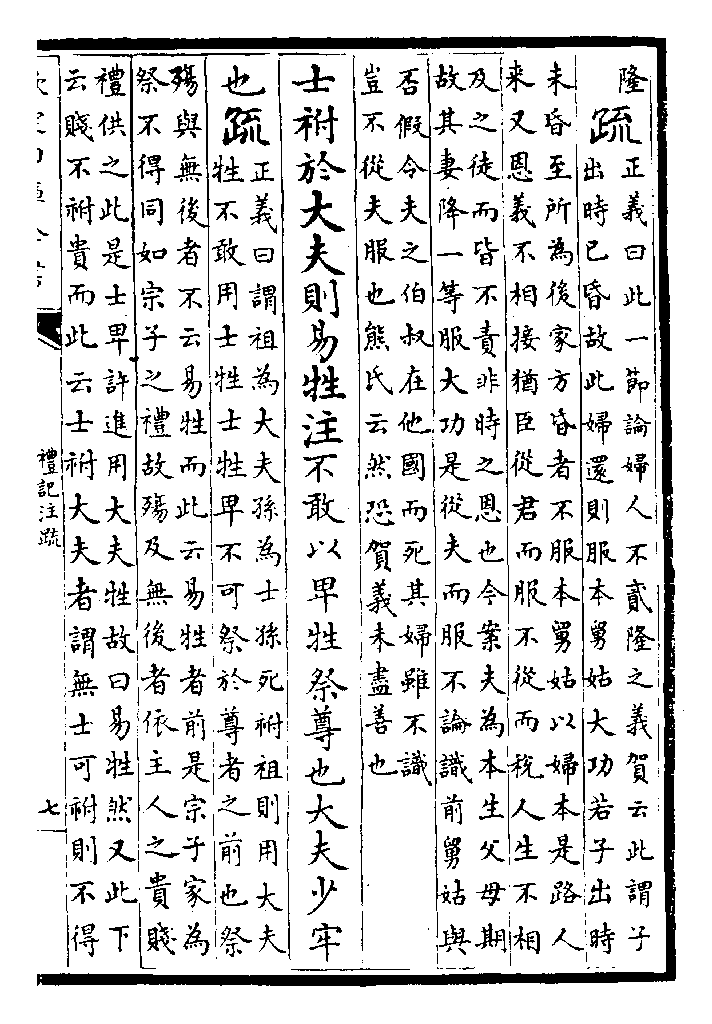 隆疏正義曰此一節論婦人不貳隆之義賀云此謂子
出時已昏故此婦還則服本舅姑大功若子出時
未昏至所為後家方昏者不服本舅姑以婦本是路人
来又恩義不相接猶臣從君而服不從而稅人生不相
及之徒而皆不責非時之恩也今案夫為本生父母期
故其妻降一等服大功是從夫而服不論識前舅姑與
否假令夫之伯叔在他國而死其婦雖不識
豈不從夫服也熊氏云然恐賀義未盡善也
士祔於大夫則易牲注不敢以卑牲祭尊也大夫少牢
也疏正義曰謂祖為大夫孫為士孫死祔祖則用大夫
牲不敢用士牲士牲卑不可祭於尊者之前也祭
殤與無後者不云易牲而此云易牲者前是宗子家為
祭不得同如宗子之禮故殤及無後者依主人之貴賤
禮供之此是士卑許進用大夫牲故曰易牲然又此下
云賤不祔貴而此云士祔大夫者謂無士可祔則不得
禮記注疏
七